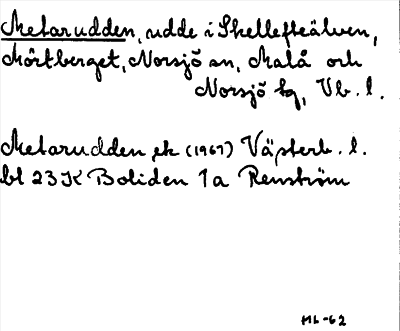 Metarudden, udde i Skellefteälven,
Mörtberget, Norsjö sn, Malå och
Norsjö tg, Vb. l.
Metarudden ek (1967) Västerb. l.
bl 23K Boliden 1a Renström
HL-62